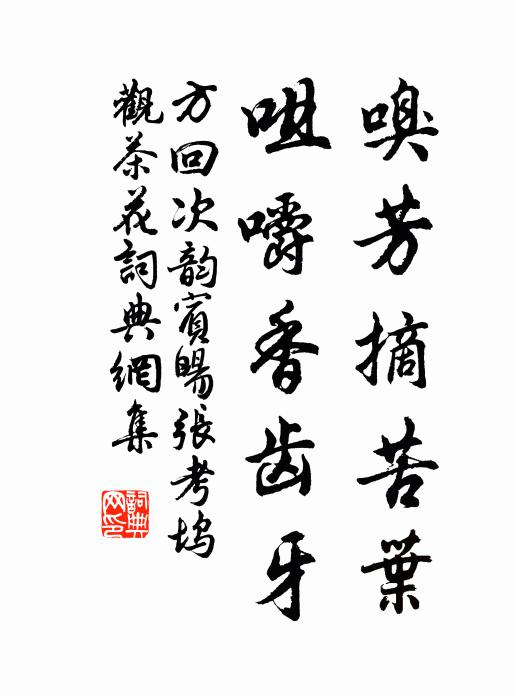 嗅芳摘苦葉
咀嚼香齿牙
方回次韵賓暘張考塢
觀茶花詞典網集
詞典
网印